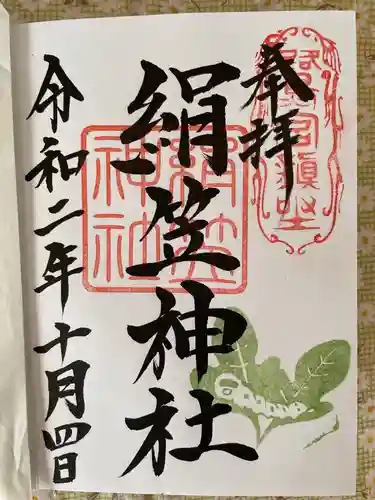 奉拝
絹笠神社
令和二年十月四日
絹笠
神社